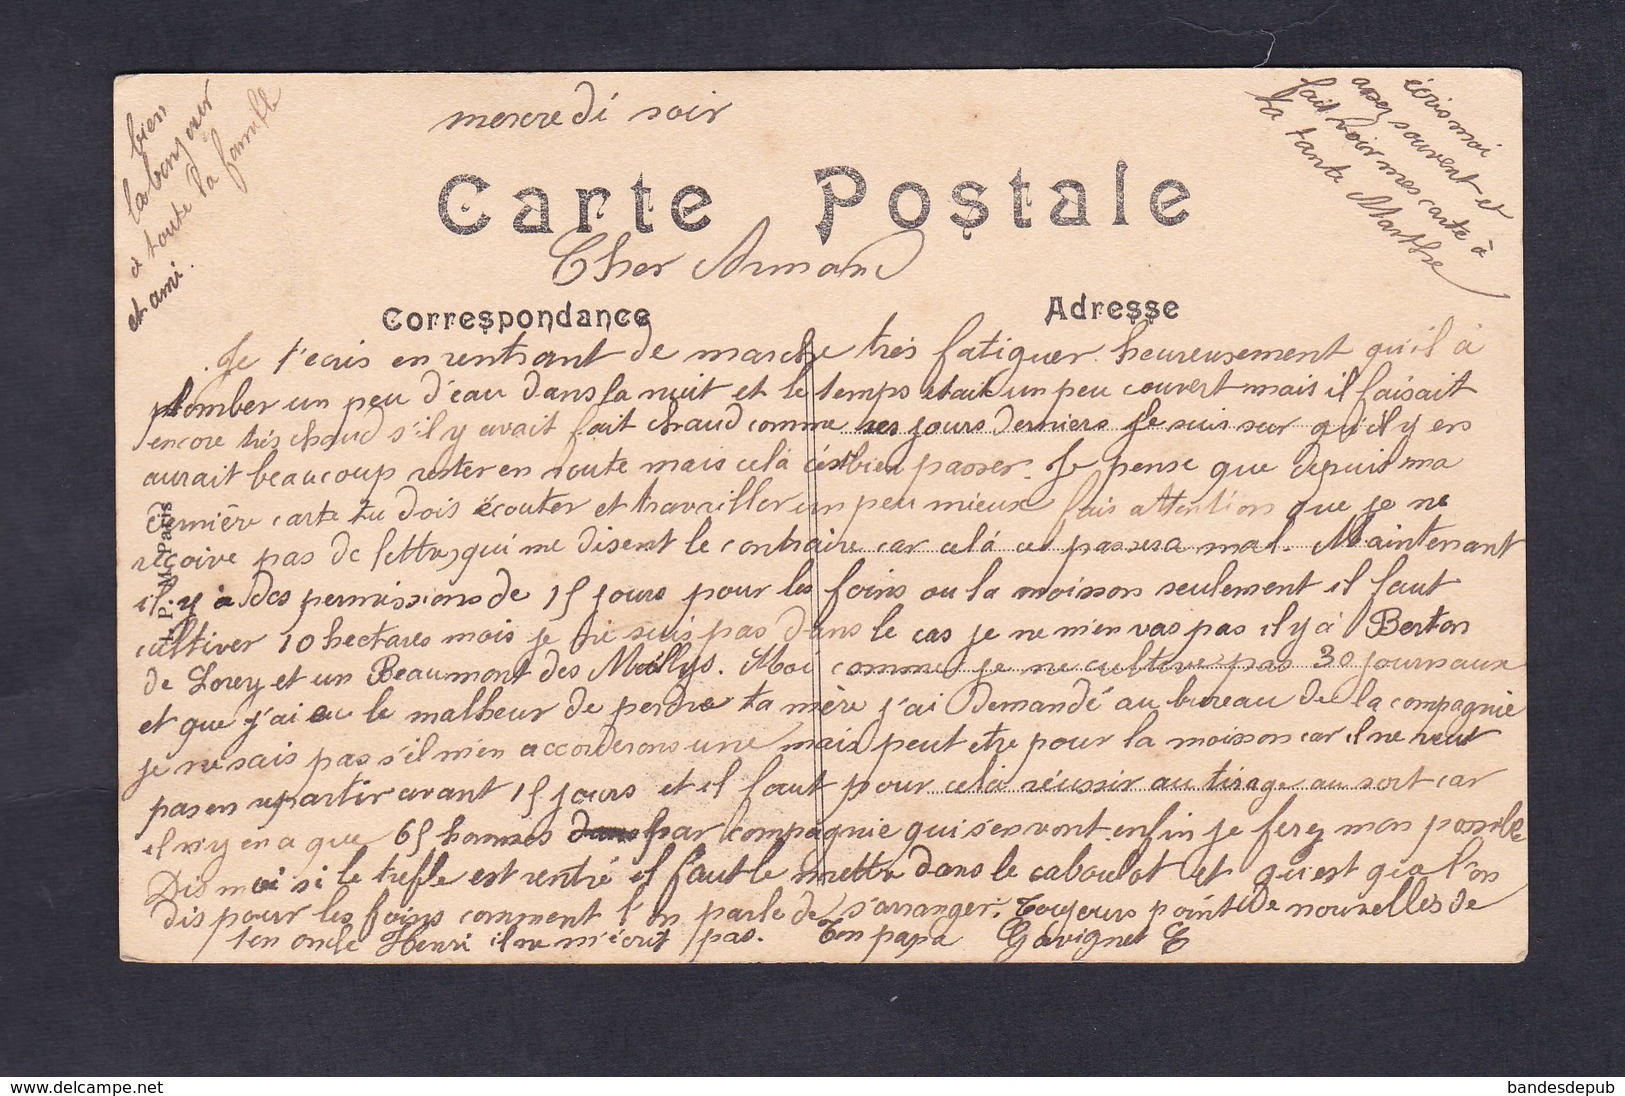 mercredi soir
bien
la bonjour
à toute la famille
et ami.
écris moi
assez souvent et
fait voir mes carte à
ta tante Marthe
Carte Postale
Cher Armand
Correspondance
Adresse
Je t'ecris en rentrant de marche très fatiguer heureusement qu'il à
tomber un peu d'eau dans la nuit et le temps était un peu couvert mais il faisait
encore très chaud s'il y avait fait chaud comme ces jours derniers je suis sur qu'il y en
aurait beaucoup rester en route mais celà c'est bien passer. Je pense que depuis ma
dernière carte tu dois écouter et travailler un peu mieux fais attention que je ne
reçoive pas de lettres qui me disent le contraire car celà ce passera mal. Maintenant
il y a des permissions de 15 jours pour les foins ou la moisson seulement il faut
cultiver 10 hectares mois je ne suis pas dans le cas je ne m'en vas pas il y à Berton
de Lorey et un Beaumont des Maillys. Moi comme je ne cultive pas 30 journaux
et que j'ai eu le malheur de perdre ta mère j'ai demandé au bureau de la compagnie
je ne sais pas s'il m'en accorderons une mais peut etre pour la moisson car il ne veut
pas en repartir avant 15 jours et il faut pour celà réussir au tirage au sort car
il n'y en a que 65 hommes par compagnie qui s'en vont enfin je ferez mon possible
Dis moi si le trefle est rentré il faut le mettre dans le caboulot et qu'est que l'on
dis pour les foins comment l'on parle de s'arranger. Toujours point de nouvelles de
ton oncle Henri il ne m'écrit pas. Ton papa Gavignet E
I. P. M. Paris
delcampe.net
bandesdepub